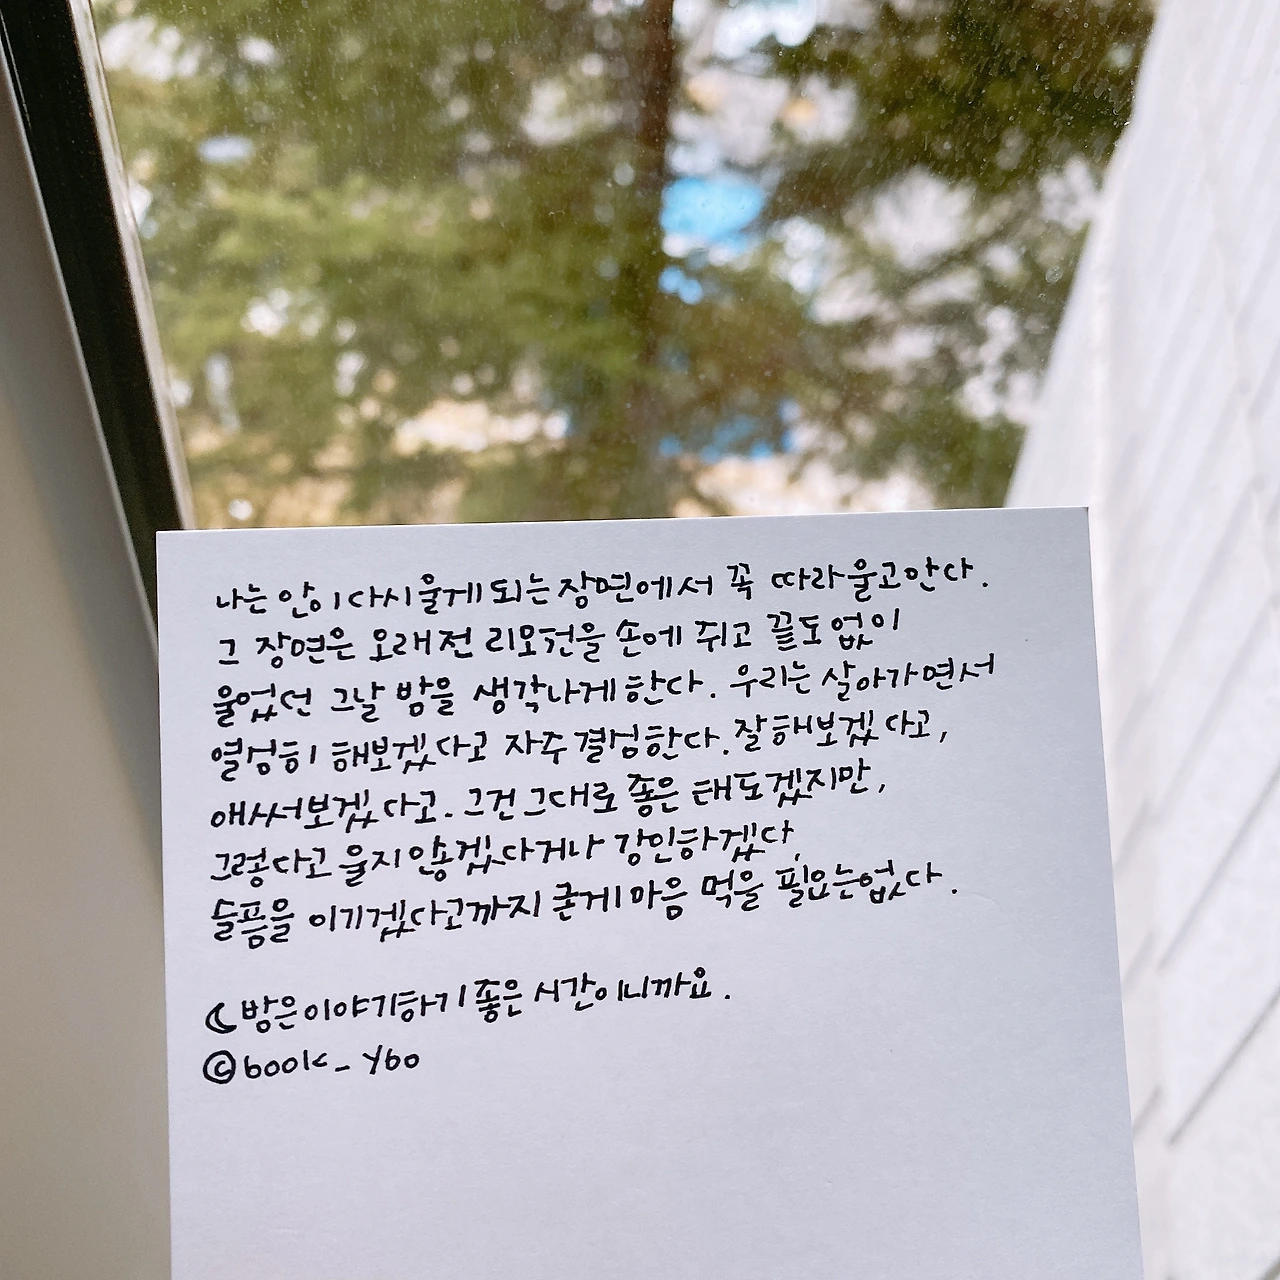 나는 안이 다시 울게 되는 장면에서 꼭 따라 울고 만다.
그 장면은 오래전 리모컨을 손에 쥐고 끝도 없이
울었던 그날 밤을 생각나게 한다. 우리는 살아가면서
열심히 해보겠다고 자주 결심한다. 잘 해보겠다고,
애써보겠다고. 그건 그대로 좋은 태도겠지만,
그렇다고 울지 않겠다거나 강인하겠다,
슬픔을 이기겠다고까지 굳게 마음 먹을 필요는 없다.
밤은 이야기하기 좋은 시간이니까요.
©book_ybo